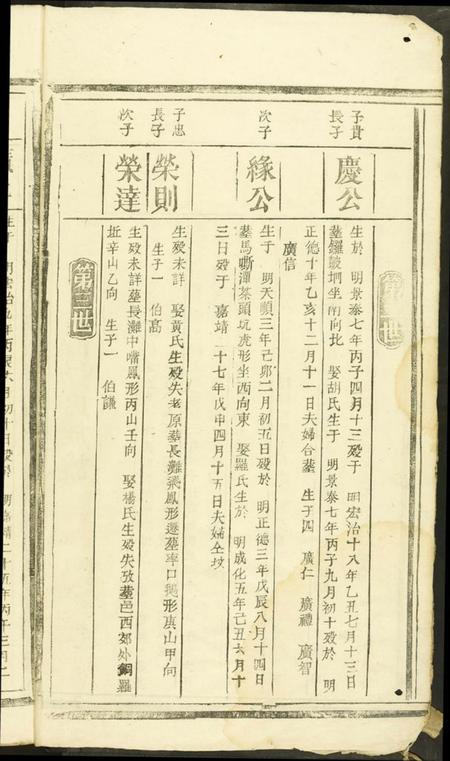 子貴
長子
慶公
生於　明景泰七年丙子四月十三歿于　明宏治十八年乙丑七月十三日
塟鑼鼓垇坐南向北　娶胡氏生于　明景泰七年丙子九月初十歿於　明
正德十年乙亥十二月十一日夫婦合塟　生子四　廣仁　廣禮　廣智
廣信
次子
緣公
生于　明天順三年己卯二月初五日歿於　明正德三年戊辰八月十四日
塟馬嘶潭茶頭坑虎形坐西向東　娶羅氏生於　明成化五年己丑六月十
三日歿于　嘉靖二十七年戊申四月十五日夫婦仝坟
子忠
長子
榮則
生歿未詳　娶黃氏生歿失考原塟長灘飛鳳形遷塟率口鵝形庚山甲向
生子一　伯高
次子
榮達
生歿未詳塟長灘中嘴鳳形丙山壬向　娶楊氏生歿失攷塟邑西郊外銅羅
坵辛山乙向　生子一　伯謙
第二世
第三世